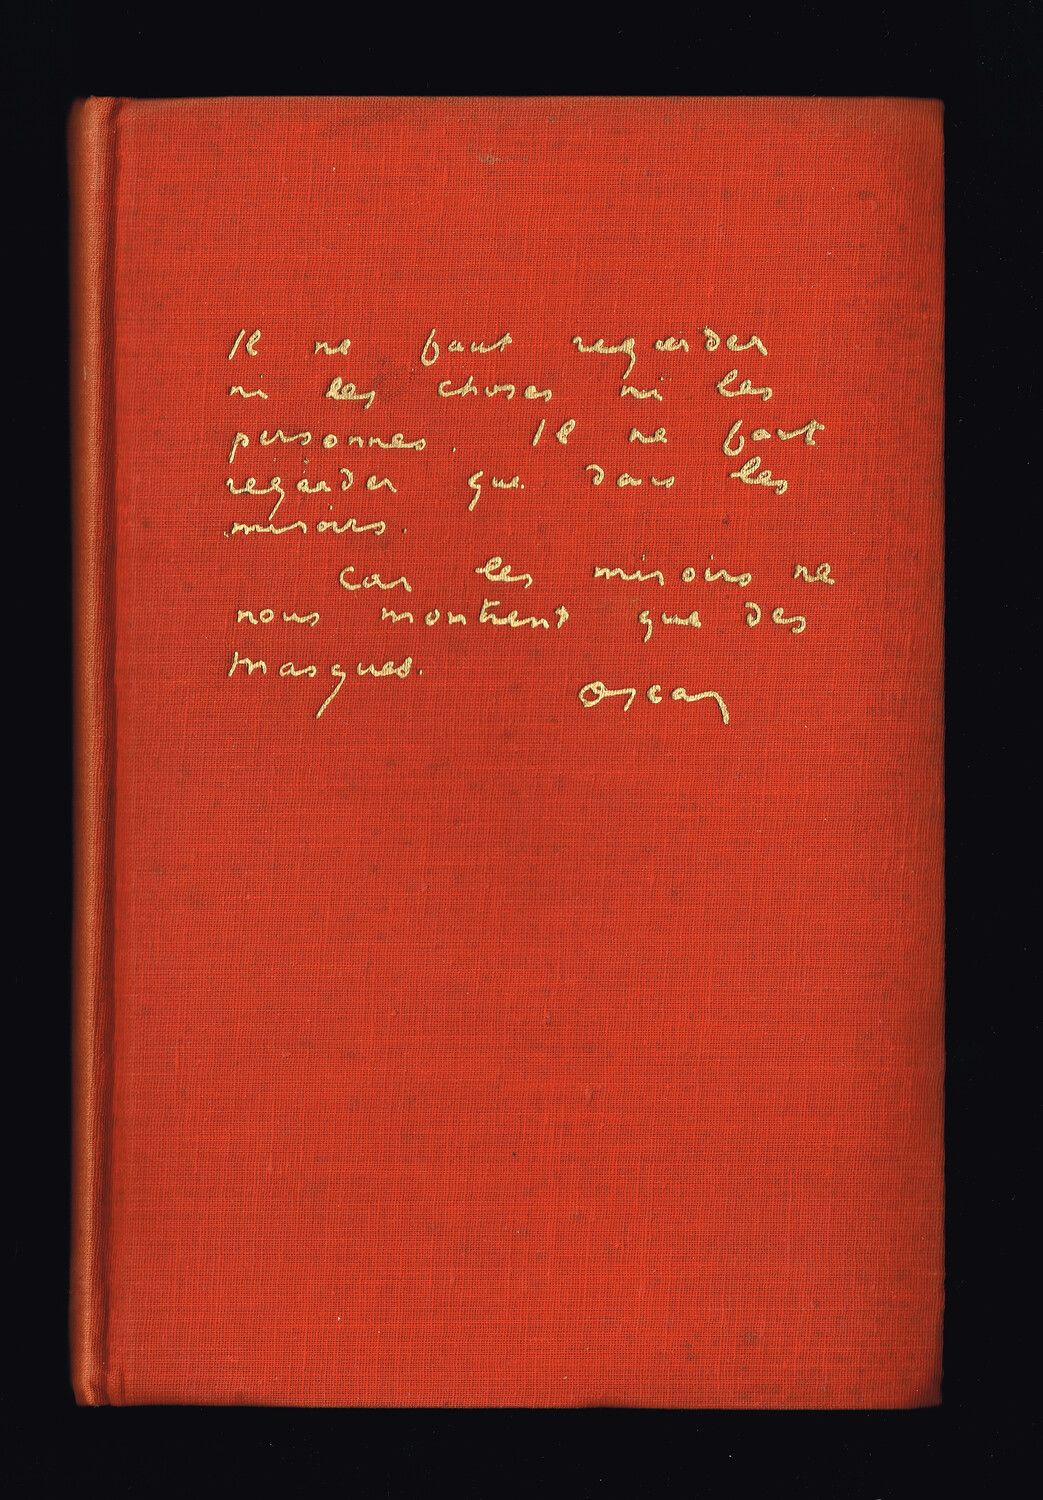 Il ne faut regarder
ni les choses ni les
personnes. Il ne faut
regarder que dans les
miroirs.
Car les miroirs ne
nous montrent que des
masques.
Oscar